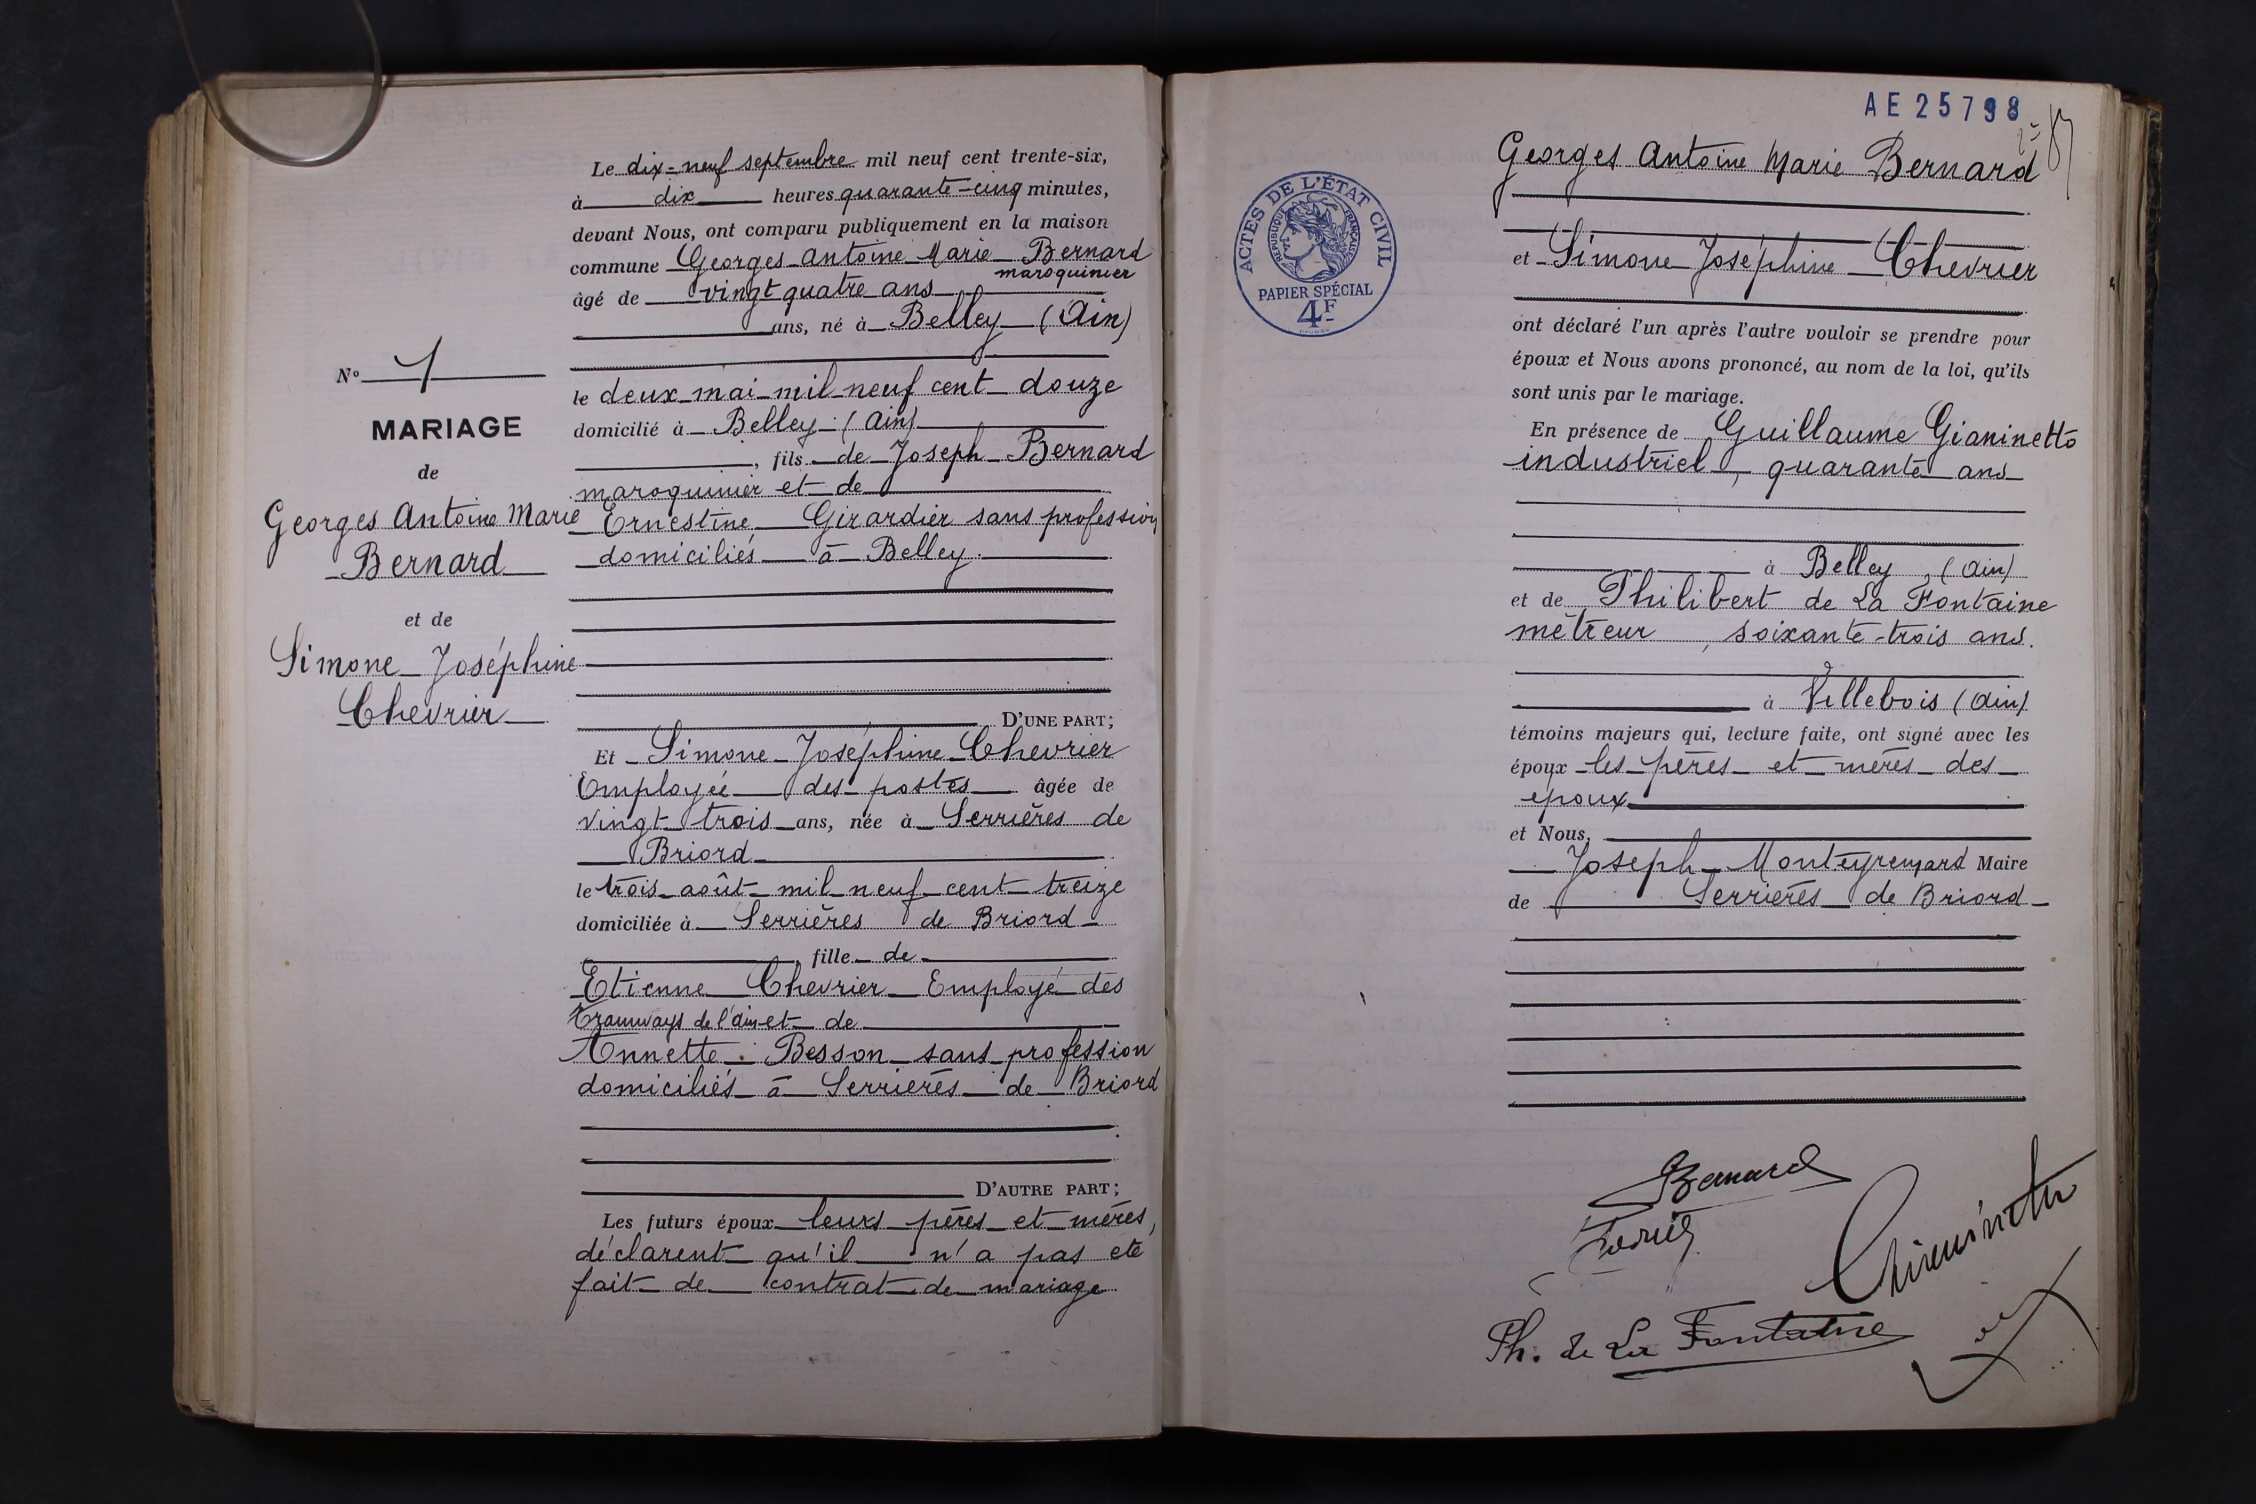 Le dix-neuf septembre mil neuf cent trente-six,
à dix heures quarante-cinq minutes,
devant Nous, ont comparu publiquement en la maison
commune Georges Antoine Marie Bernard
maroquinier
âgé de vingt quatre ans
ans, né à Belley (Ain)
le deux mai mil neuf cent douze
domicilié à Belley (Ain)
, fils de Joseph Bernard
maroquinier et de
Ernestine Girardier sans profession
domiciliés à Belley.
D'UNE PART;
Et Simone Joséphine Chevrier
Employée des postes âgée de
vingt trois ans, née à Serrières de
Briord
le trois août mil neuf cent treize
domiciliée à Serrières de Briord
, fille de
Etienne Chevrier Employé des
Tramways de l'ain et de
Annette Besson sans profession
domiciliés à Serrières de Briord
D'AUTRE PART;
Les futurs époux leurs pères et mères,
déclarent qu'il n'a pas été
fait de contrat de mariage
Nº 1
MARIAGE
de
Georges Antoine Marie
Bernard
et de
Simone Joséphine
Chevrier
AE 25798
Georges Antoine Marie Bernard
et Simone Joséphine Chevrier
ont déclaré l'un après l'autre vouloir se prendre pour
époux et Nous avons prononcé, au nom de la loi, qu'ils
sont unis par le mariage.
En présence de Guillaume Gianinetto
industriel, quarante ans
à Belley, (Ain)
et de Philibert de La Fontaine
métreur, soixante-trois ans.
à Villebois (Ain)
témoins majeurs qui, lecture faite, ont signé avec les
époux les pères et mères des
époux
et Nous,
Joseph Monteyremard Maire
de Serrières de Briord
ACTES DE L'ÉTAT CIVIL
RÉPUBLIQUE FRANÇAISE
PAPIER SPÉCIAL
4F
Bernard
Ph. de La Fontaine